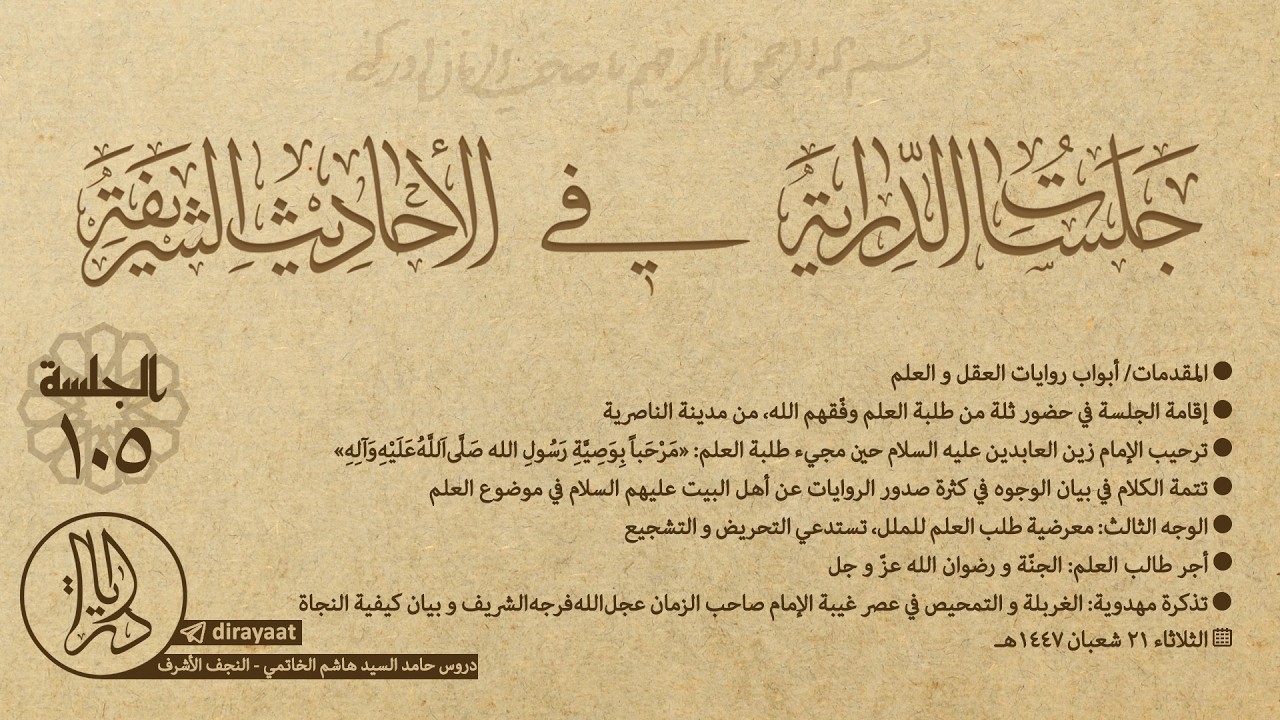 بسم الله الرحمن الرحيم يا صاحب الزمان أدركني
جَلَسَاتُ الدِّرَايَةِ فِي الأَحَادِيثِ الشَّرِيفَةِ
الجلسة
١٠٥
المقدمات/ أبواب روايات العقل و العلم
إقامة الجلسة في حضور ثلة من طلبة العلم وفّقهم الله، من مدينة الناصرية
ترحيب الإمام زين العابدين عليه السلام حين مجيء طلبة العلم: «مَرْحَباً بِوَصِيَّةِ رَسُولِ الله صَلَّى‌اَللَّهُ‌عَلَيْهِ‌وَآلِهِ»
تتمة الكلام في بيان الوجوه في كثرة صدور الروايات عن أهل البيت عليهم السلام في موضوع العلم
الوجه الثالث: معرضية طلب العلم للملل، تستدعي التحريض و التشجيع
أجر طالب العلم: الجنّة و رضوان الله عزّ و جل
تذكرة مهدوية: الغربلة و التمحيص في عصر غيبة الإمام صاحب الزمان عجل‌الله‌فرجه‌الشريف و بيان كيفية النجاة
الثلاثاء ٢١ شعبان ١٤٤٧هـ
درايات
dirayaat
دروس حامد السيد هاشم الخاتمي - النجف الأشرف